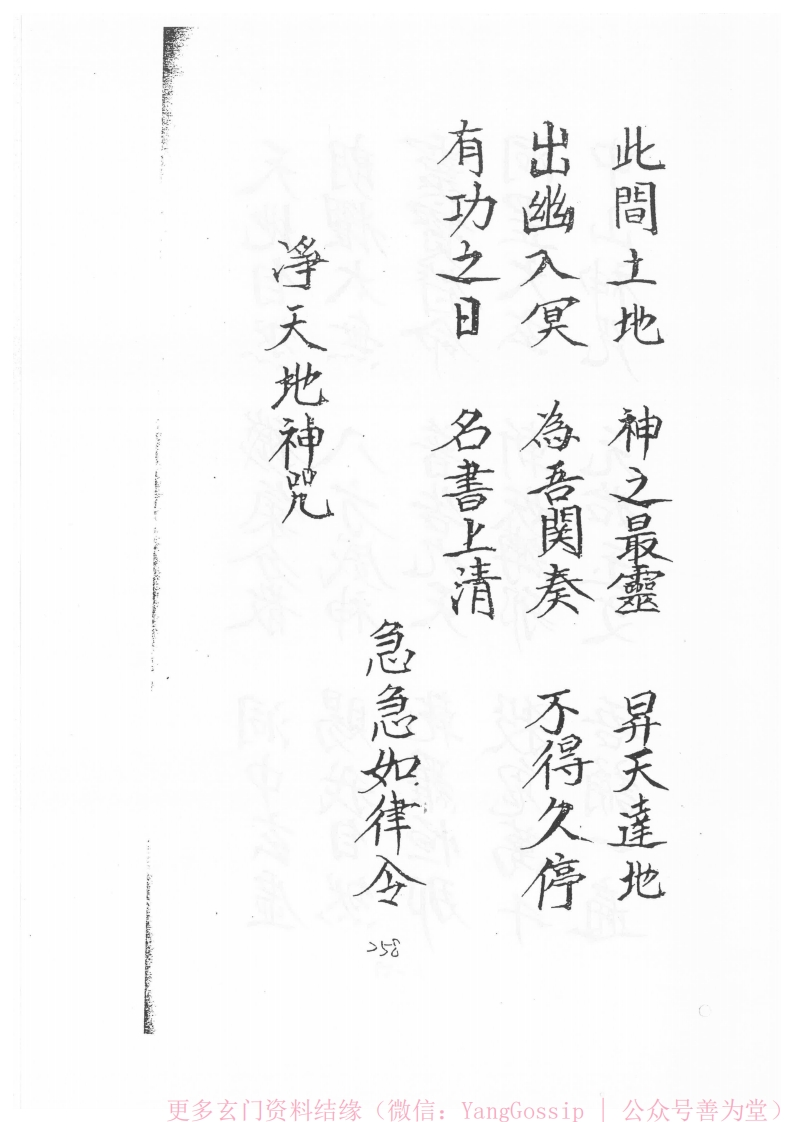 此間土地　神之最靈　昇天達地
出幽入冥　為吾関奏　不得久停
有功之日　名書上清
急急如律令
淨天地神咒
258
更多玄门资料结缘（微信：YangGossip | 公众号善为堂）